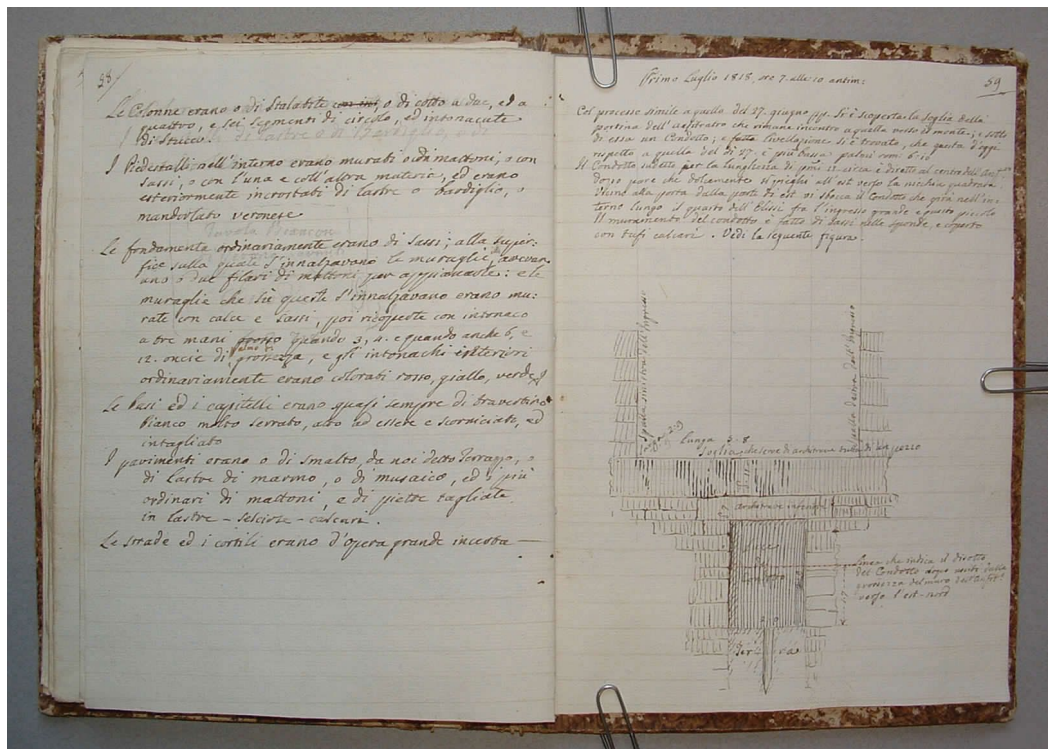 58
Le Colonne erano o di Scalabite con inti, o di cotto a due, ed a
quattro, e sei segmenti di circolo, ed intonacate
di Stucco.
I Piedestalli nell'interno erano murati o di mattoni, o con
sassi, o con l'una e coll'altra materia, ed erano
esteriormente incrostati di lastre o bardiglio, o
mandorlato veronese
Le fondamenta ordinariamente erano di sassi; alla super=
ficie sulla quale s'innalzavano le muraglie,
uno o due filari di mattoni per appianarle: e le
muraglie che su queste s'innalzavano erano mu:
rate con calce e sassi, poi ricoperte con intonaco
a tre mani grosso quando 3, 4. e quando anche 6, e
12. oncie di grossezza, e gli intonachi interiori
ordinariamente erano colorati rosso, giallo, verde
Le basi ed i capitelli erano quasi sempre di travertino
bianco molto serrato, atto ad essere e scorniciato, ed
intagliato
I pavimenti erano o di smalto, da noi detto Terrazzo, o
di lastre di marmo, o di musaico, ed i più
ordinari di mattoni, e di pietre tagliate
in lastre - selciose - calcari.
Le strade ed i cortili erano d'opera grande incerta —
Primo Luglio 1818, ore 7. alle 10 antim:
59
Col processo simile a quello del 27. giugno pp. si è scoperta la soglia della
portina dell'anfiteatro che rimane incontro a quella verso il monte; e sotto
di essa un Condotto; e fatta livellazione si è trovato, che questa d'oggi
rispetto a quella del dì 27. è più bassa palmi rom: 6.10
Il Condotto diretto per la lunghezza di palmi 11 circa è diretto al centro dell'
dopo pare che dolcemente si pieghi all'est verso la nicchia quadrata
vicino alla porta dalla parte di est ov'sbocca il Condotto che gira nell'in=
terno lungo il quarto dell'Elissi fra l'ingresso grande e questo piccolo
Il muramento del condotto è fatto di sassi nelle sponde, e coperto
con tufi calcari. Vedi la seguente figura.
Spalla sinistra dell'Ingresso
Spalla destra dell'Ingresso
larga 2.9
Lunga 3.8
Soglia, che serve di architrave tutta di un pezzo
architrave interno
Luce
del
Condotto
Linea che indica il disotto
del Condotto dopo
grossezza del muro dell'Anfit.
verso l'est-nord
Ter ra